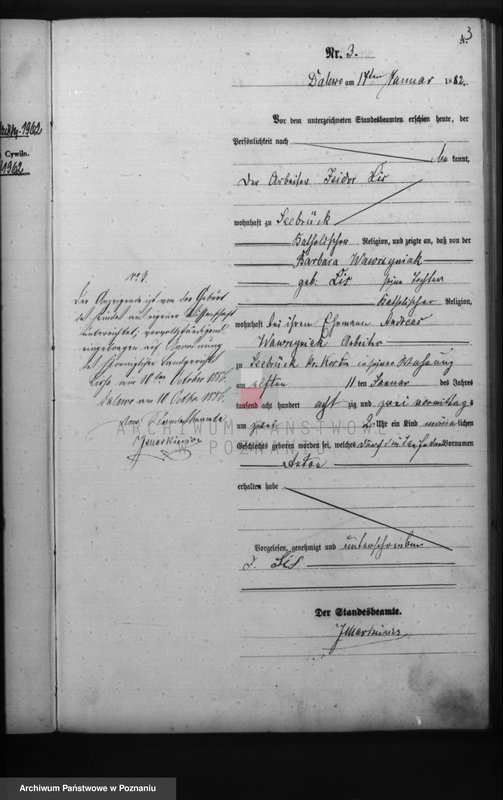 3
A.
Nr. 3.
Dalewo am 17ten Januar 1882.
Vor dem unterzeichneten Standesbeamten erschien heute, der
Persönlichkeit nach
be kannt,
Der Arbeiter Isidor Lis
wohnhaft zu Seebrück
katholischer Religion, und zeigte an, daß von der
Barbara Wawrzyniak
geb: Lis seine Tochter
katholischer Religion,
wohnhaft bei ihrem Ehemann Andreas
Wawrzyniak Arbeiter
zu Seebrück in seiner Wohnung
am elften 11 ten Januar des Jahres
tausend acht hundert acht zig und zwei vormittags
um zwei 2 Uhr ein Kind männlichen
Geschlechts geboren worden sei, welches Vornamen
Anton
erhalten habe
Vorgelesen, genehmigt und unterschrieben
J. Lis
Der Standesbeamte.
No 3.
Der Anzeigende ist von der Geburt
des Kindes aus eigener Wissenschaft
unterrichtet;
eingetragen auf Anordnung
des Königlichen Landgerichts
Lissa am 10ten October
Dalewo am
Der Standesbeamte
1962
Cywiln.
1962
ARCHIWUM PAŃSTWOWE
W POZNANIU
Archiwum Państwowe w Poznaniu